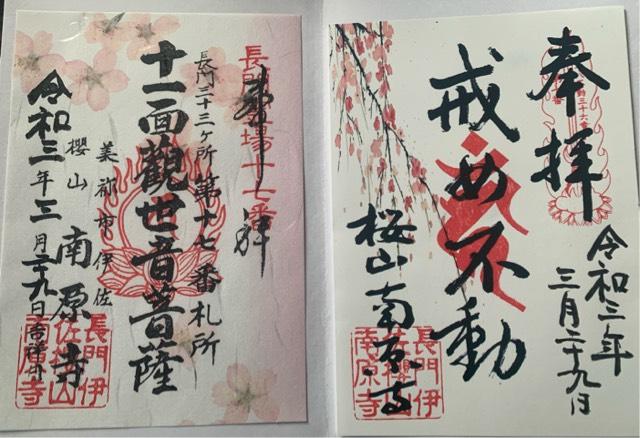 奉拝
長門三十三ヶ所第十七番札所
十一面観世音菩薩
美祢市伊佐
櫻山 南原寺
令和三年三月二十九日
長門伊
佐桜山
南原寺
奉拝
戒め不動
桜山南原寺
令和三年
三月二十九日
長門伊
南原寺